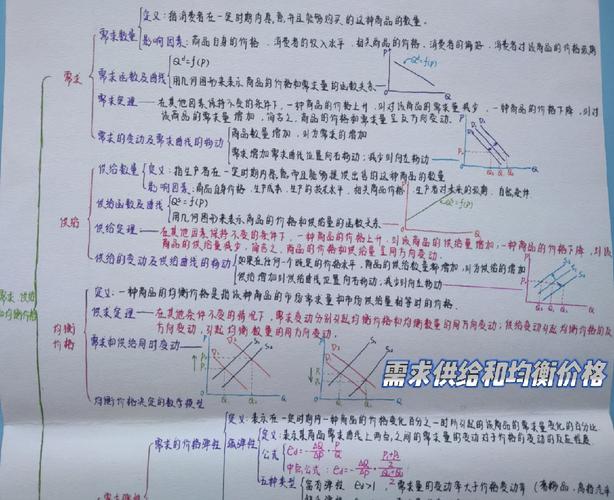 定义：指消费者在一定时期内愿意并且能够购买的这种商品的数量。
需求数量
影响因素：商品自身的价格、消费者的收入水平、相关商品的价格、消费者的偏好、消费者对该商品的价格预期
Q^d=f(P)
需求函数及曲线
用几何图形来表示商品的价格和需求量的函数关系
Q^d=f(P)
需求
需求定理——在其他因素保持不变的条件下，一种商品的价格上升，则对该商品的需求量减少，一种商品的价格下降，则对
该商品的需求量增加，简言之，商品的价格和需求量呈反方向变动。
需求的变动及需求曲线的移动
商品数量增加，则为需求的增加
需求增加需求曲线位置向右移动；减少则向左移动
供给数量
定义：指生产者在一定时期内愿意而且能够提供出售的这种商品数量
影响因素：商品自身价格、生产成本、生产的技术水平、相关商品价格、生产者对未来的预期、自然条件
供给函数及曲线
Q^s=f(P)
用几何图形来表示商品的价格和供给量的函数关系
Q^s=f(P)
供给
供给定理——在其他因素保持不变的条件下，一种商品的价格上升，对该商品的供给量增加；一种商品的价格下降，则该
商品的供给量减少，简言之，商品的价格和供给量呈同方向变动。
供给的变动及供给曲线的移动
如果在任何一个既定的价格水平，商品的供给数量都增加，则为供给的增加
供给增加则供给曲线位置向右移动；减少则向左移动
需求、供给
和均衡价格
定义：一种商品的均衡价格是指该种商品的市场需求量和市场供给量相等时的价格。
均衡
价格
供求定理——在其他条件不变的情况下，需求变动分别引起均衡价格和均衡数量的同方向变动；供给变动引起均衡价格的反
方向变动，引起均衡数量的同方向变动。
需求和供给同时变动
均衡价格决定的数学模型
需求供给和均衡价格
定义：表示在一定时期内一种商品的价格变化百分之一时所引起的该商品的需求量变化的百分比。
需求的价格弹性
弧弹性
定义：表示某商品需求曲线上两点之间的需求量的变动对于价格的变动的反应程度
公式：ed=-ΔQ/ΔP·P/Q
中点公式：ed=-ΔQ/ΔP·
五种类型
富有弹性 ed>1，需求量的变动率大于价格变动率